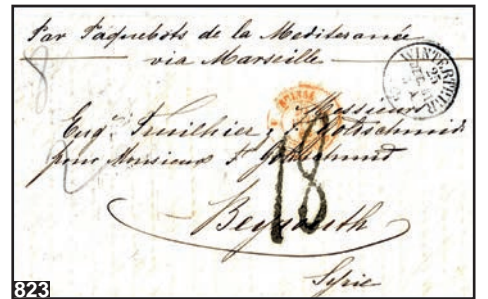 Par Paquebots de la Mediteranée
via Marseille
WINTERTHUR
25
Messieurs
Eugº Treuilhier & Goldschmidt
pour Monsieur
18
Beyrouth
Syrie
823